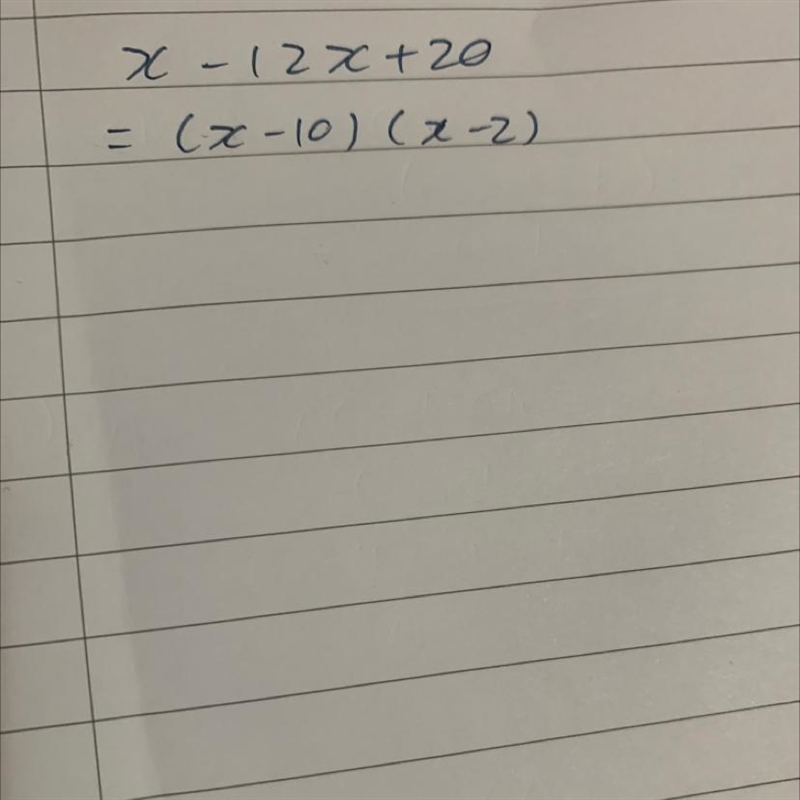 x - 12x + 20
= (x - 10) (x - 2)